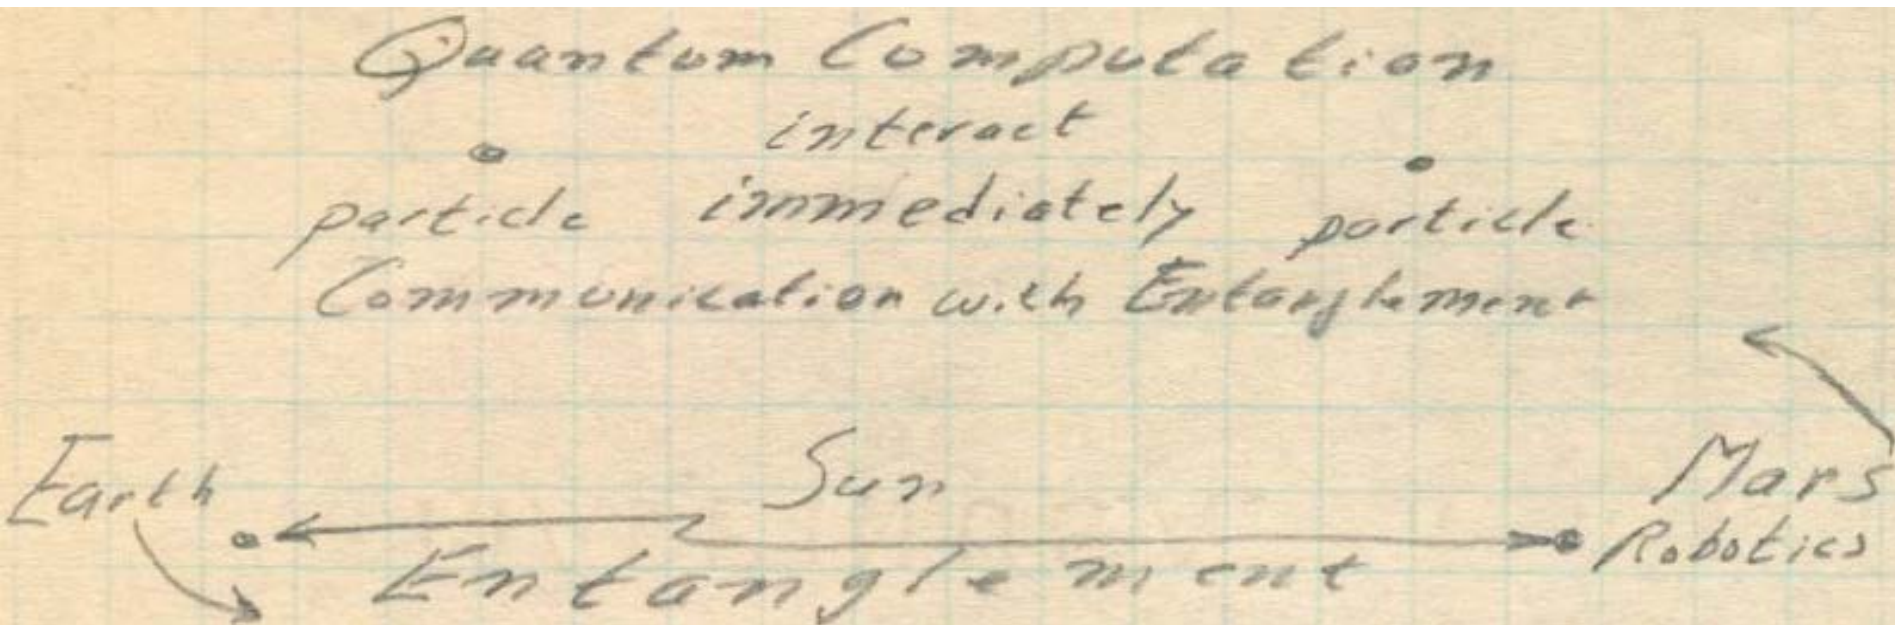 Quantum Computation
interact
particle immediately particle
Communication with Entanglement
Earth Sun Mars
Robotics
Entanglement